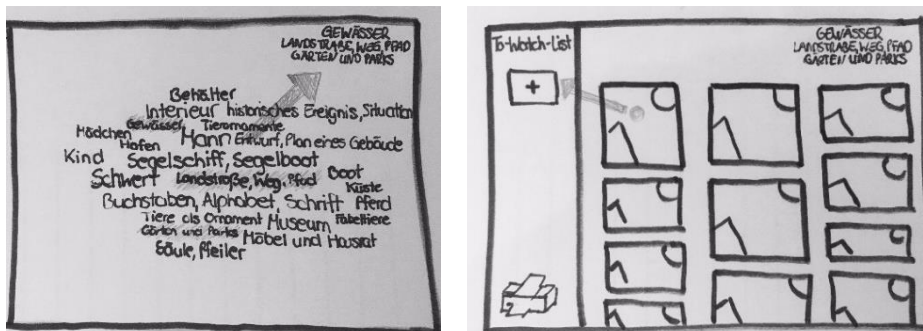 GEWÄSSER
LANDSTRAßE, WEG, PFAD
GÄRTEN UND PARKS
Behälter
Interieur historisches Ereignis, Situation
Gewässer Tierornamente
Mädchen Hafen Mann Entwurf, Plan eines Gebäude
Kind Segelschiff, Segelboot
Schwert Landstraße, Weg, Pfad Boot
Küste
Buchstaben, Alphabet, Schrift Pferd
Tiere als Ornament Museum Fabeltiere
Gärten und Parks Möbel und Hausrat
Säule, Pfeiler
To-Watch-List
+
GEWÄSSER
LANDSTRAßE, WEG, PFAD
GÄRTEN UND PARKS